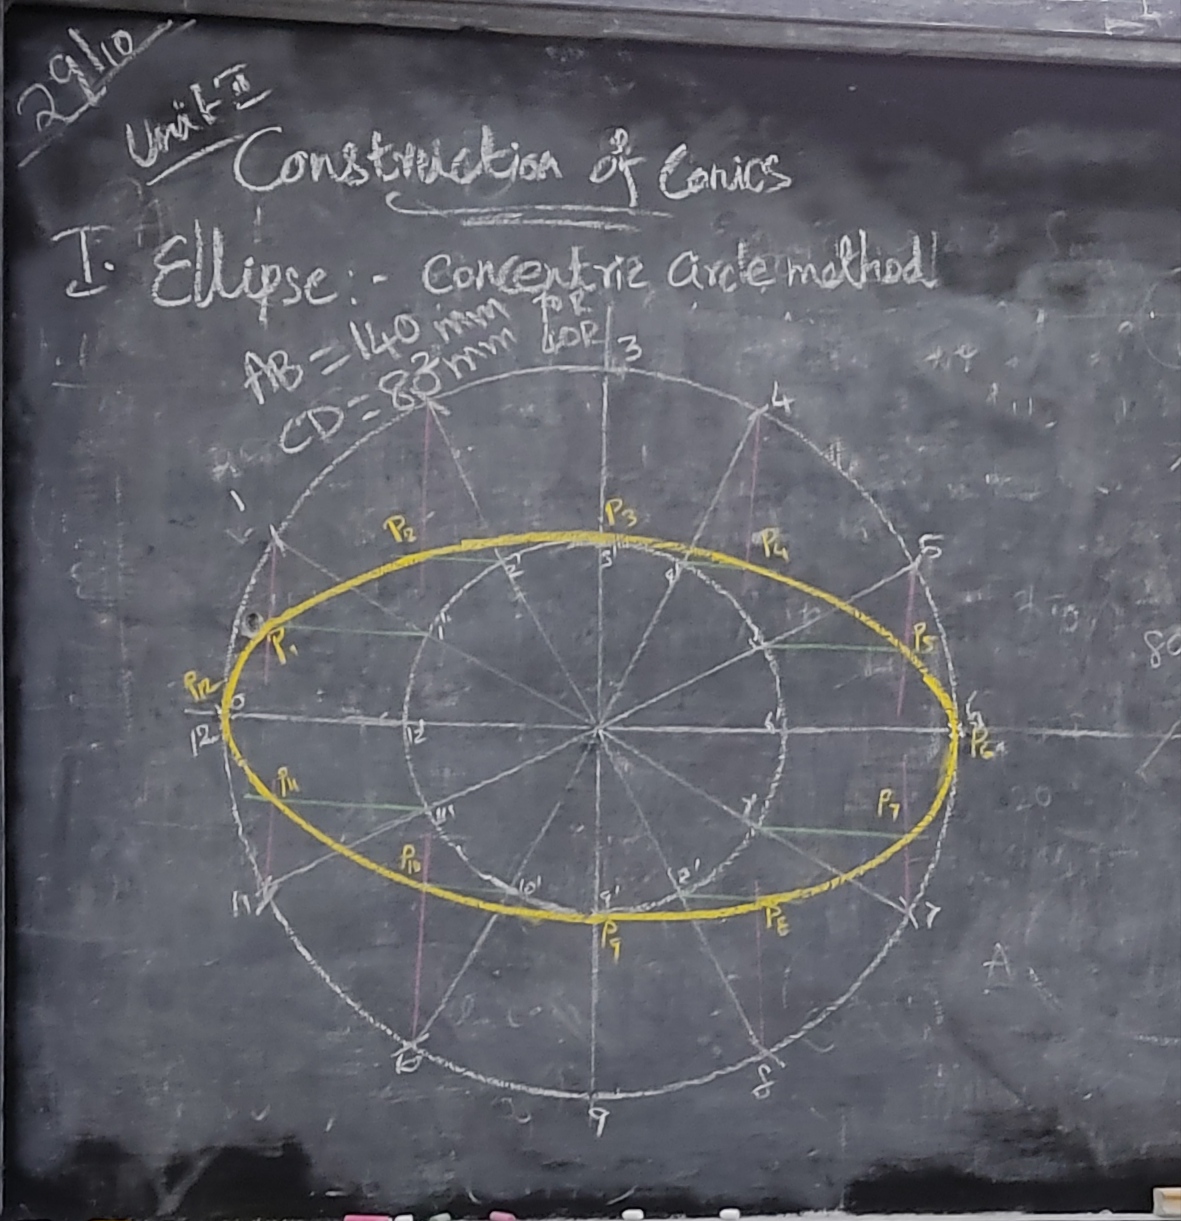 29/10
Unit II
Construction of Conics
I. Ellipse:- Concentric Circle method
AB = 140 mm 70R
CD = 80 mm 40R
3
4
1
5
P2
P3
P4
2'
3'
4'
P1
1'
P5
P12
12
12'
6'
6
P6
P11
11'
7'
P7
P10
10'
9'
P9
P8
11
7
10
8
9
A
80
20